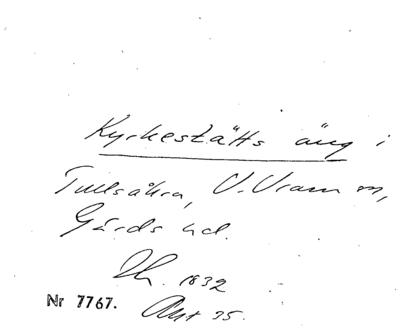 Kyrkestätts äng i
Tullsåkra, V. Vram sn,
Gärds hd.
1832
Nr 7767. Akt 35.